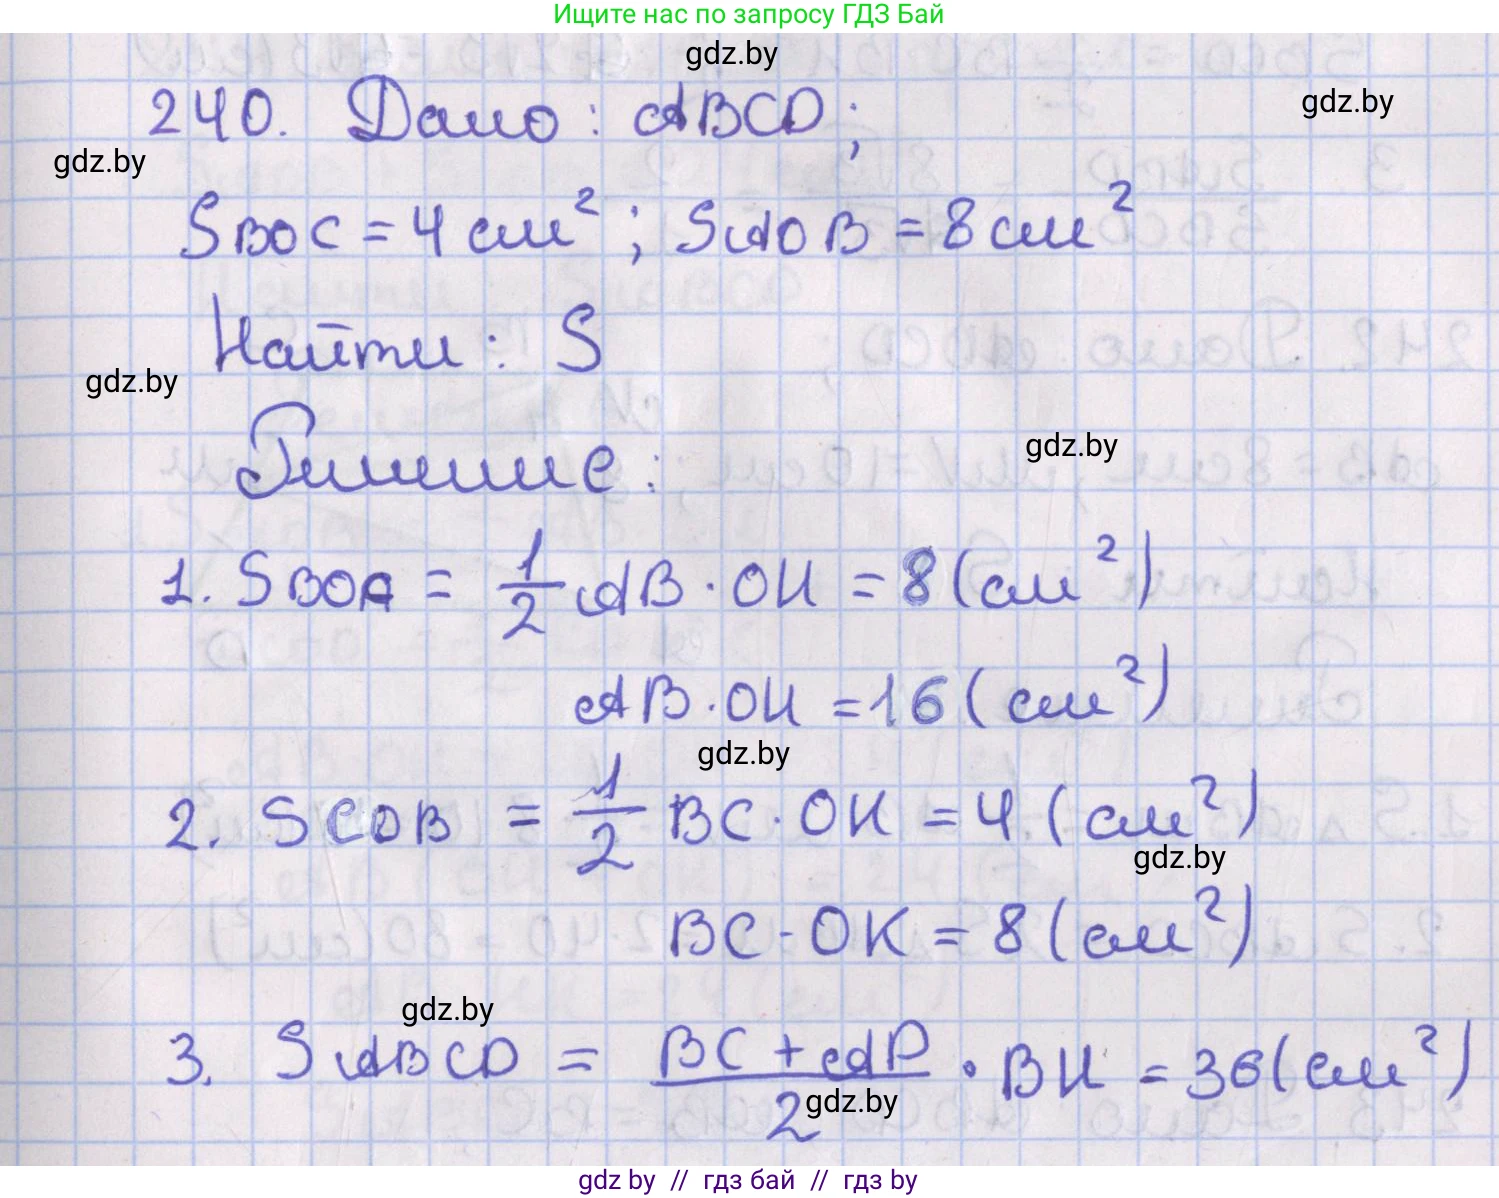 Ищите нас по запросу ГДЗ Бай
gdz.by
240. Дано: ABCD;
gdz.by
gdz.by
SBOC = 4 см²; SAOB = 8 см²
Найти: S
gdz.by
gdz.by
Решение:
1. SBOA = 1/2 AB · OH = 8 (см²)
AB · OH = 16 (см²)
gdz.by
2. SCOB = 1/2 BC · OK = 4 (см²)
gdz.by
BC · OK = 8 (см²)
gdz.by
3. SABCD = (BC + AD)/2 · BH = 36 (см²)
gdz.by
gdz by // гдз бай // гдз by